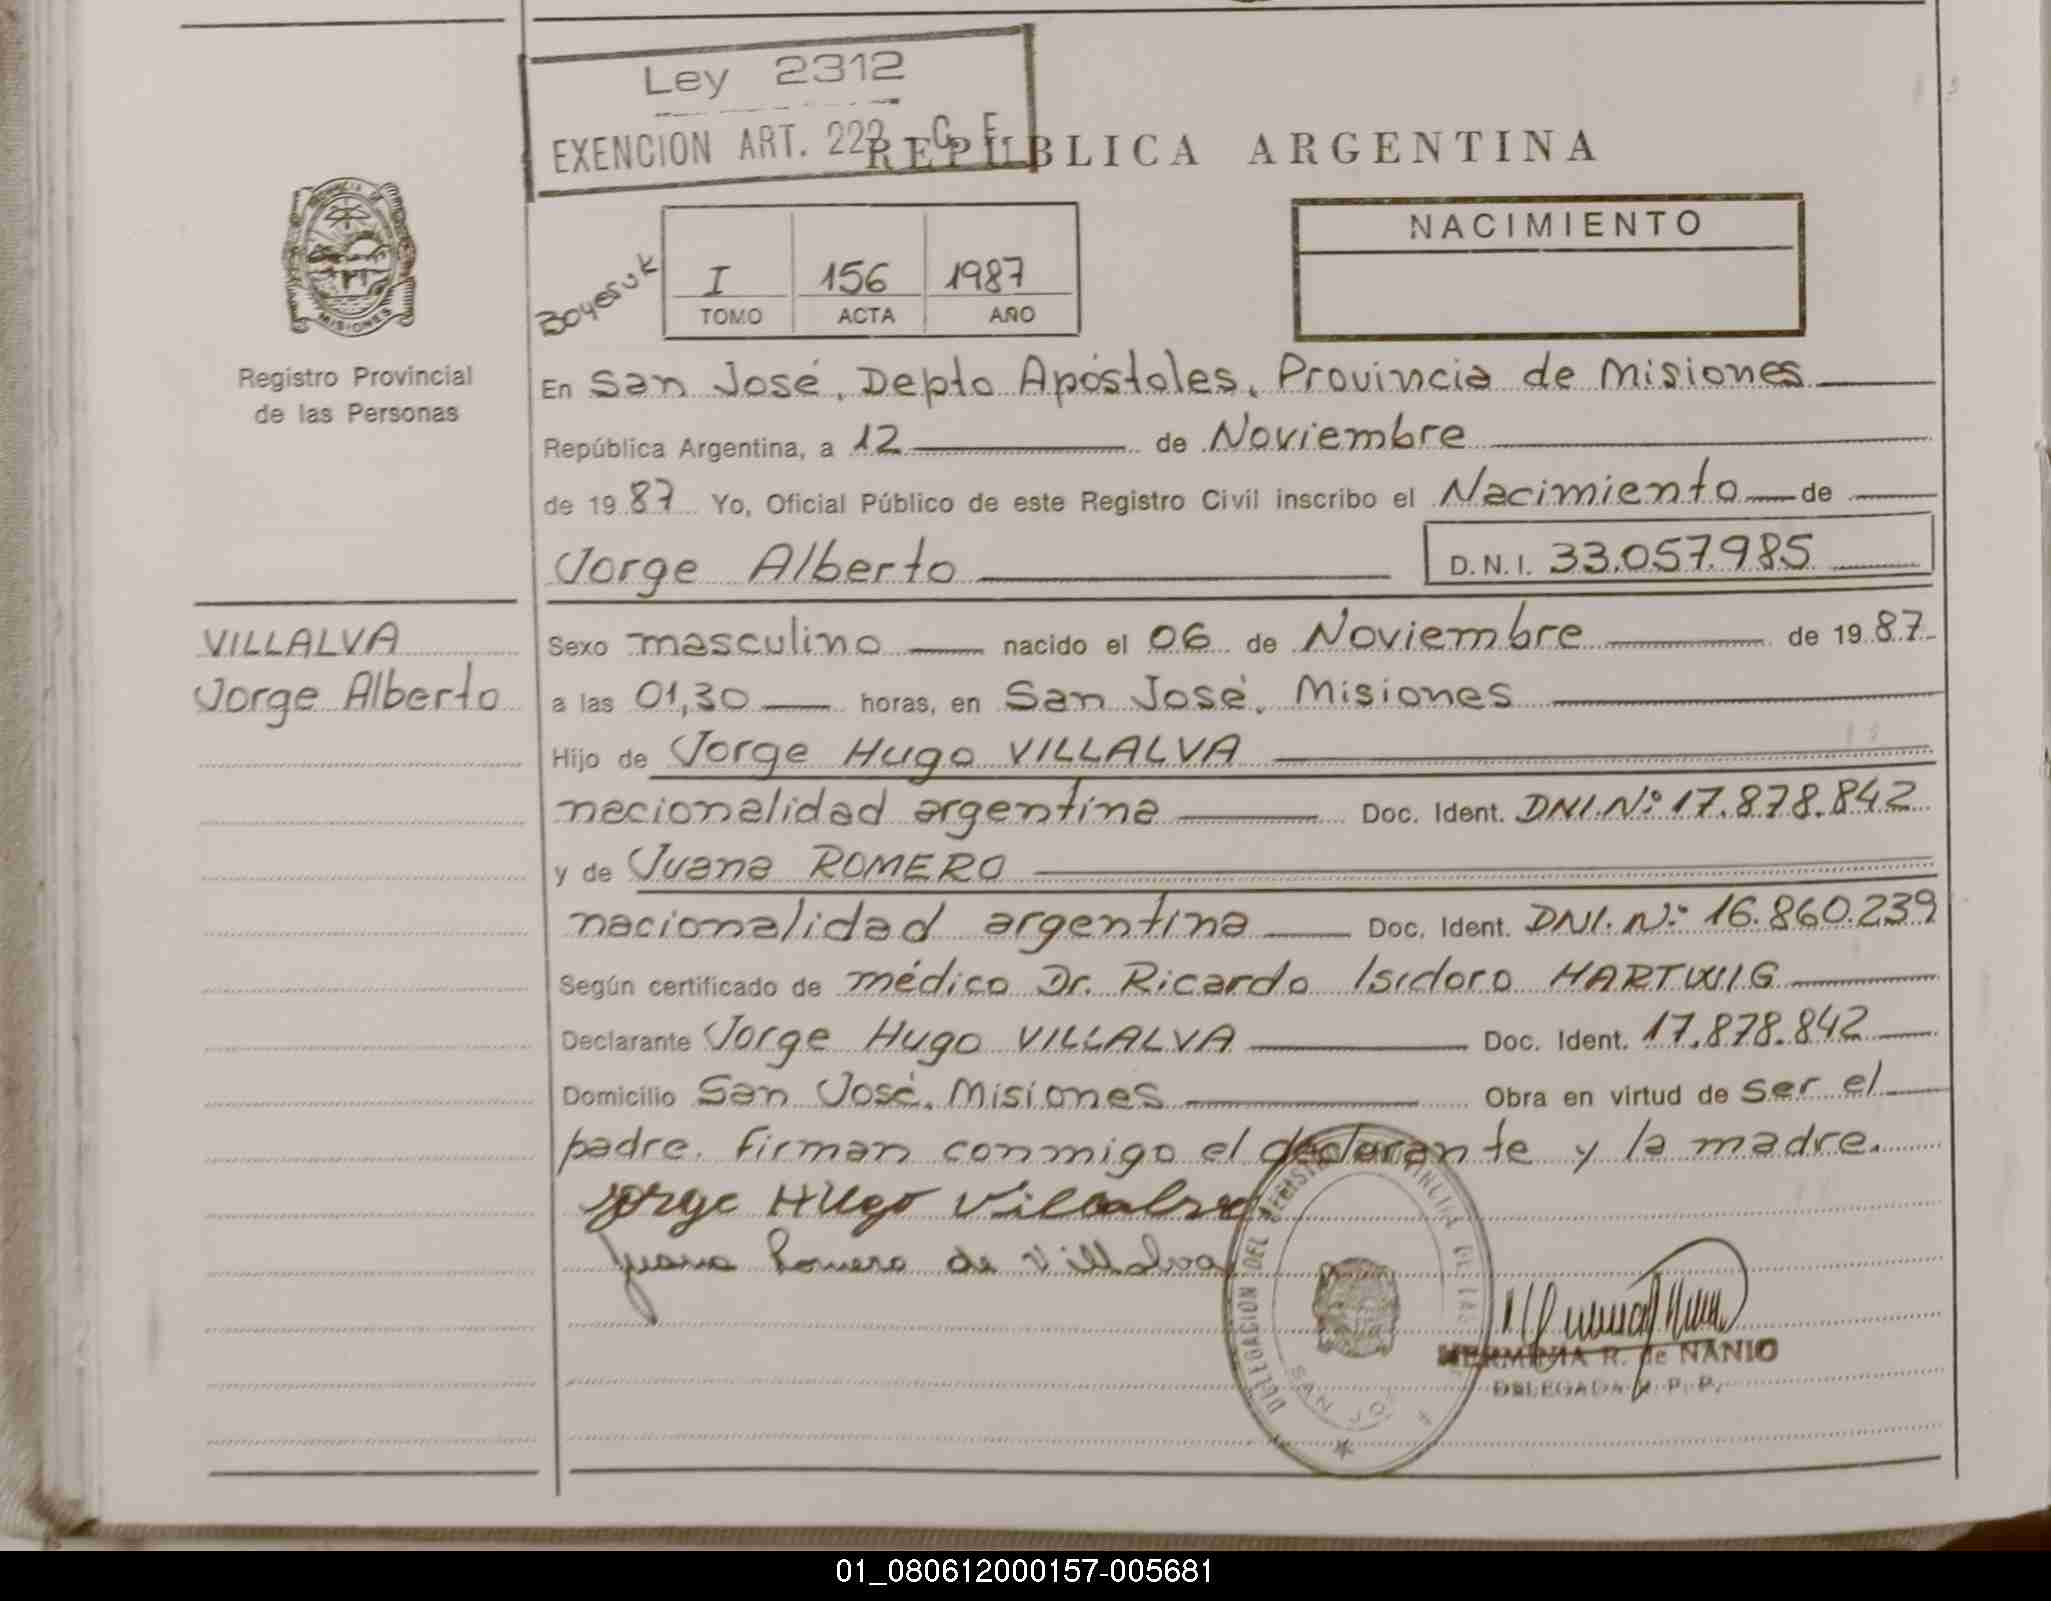 Ley 2312
EXENCION ART. 222 C F
REPUBLICA ARGENTINA
PROVINCIA DE
MISIONES
Registro Provincial
de las Personas
Boyesuk
I 156 1987
TOMO ACTA AÑO
NACIMIENTO
En San José, Depto Apóstoles, Provincia de Misiones
República Argentina, a 12 de Noviembre
de 1987 Yo, Oficial Público de este Registro Civil inscribo el Nacimiento de
Jorge Alberto D.N.I. 33.057.985
VILLALVA
Jorge Alberto
Sexo masculino nacido el 06 de Noviembre de 1987
a las 01,30 horas, en San José, Misiones
Hijo de Jorge Hugo VILLALVA
nacionalidad argentina Doc. Ident. DNI.Nº 17.878.842
y de Juana ROMERO
nacionalidad argentina Doc. Ident. DNI.Nº 16.860.239
Según certificado de médico Dr. Ricardo Isidoro HARTWIG
Declarante Jorge Hugo VILLALVA Doc. Ident. 17.878.842
Domicilio San José. Misiones Obra en virtud de ser el
padre. Firman conmigo el declarante y la madre.
Jorge Hugo Villalva
Juana Romero de Villalva
DELEGACION DEL REGISTRO PROVINCIAL DE LAS
SAN JO
HERMINIA R. de NANIO
DELEGADA R. P. P.
01_080612000157-005681